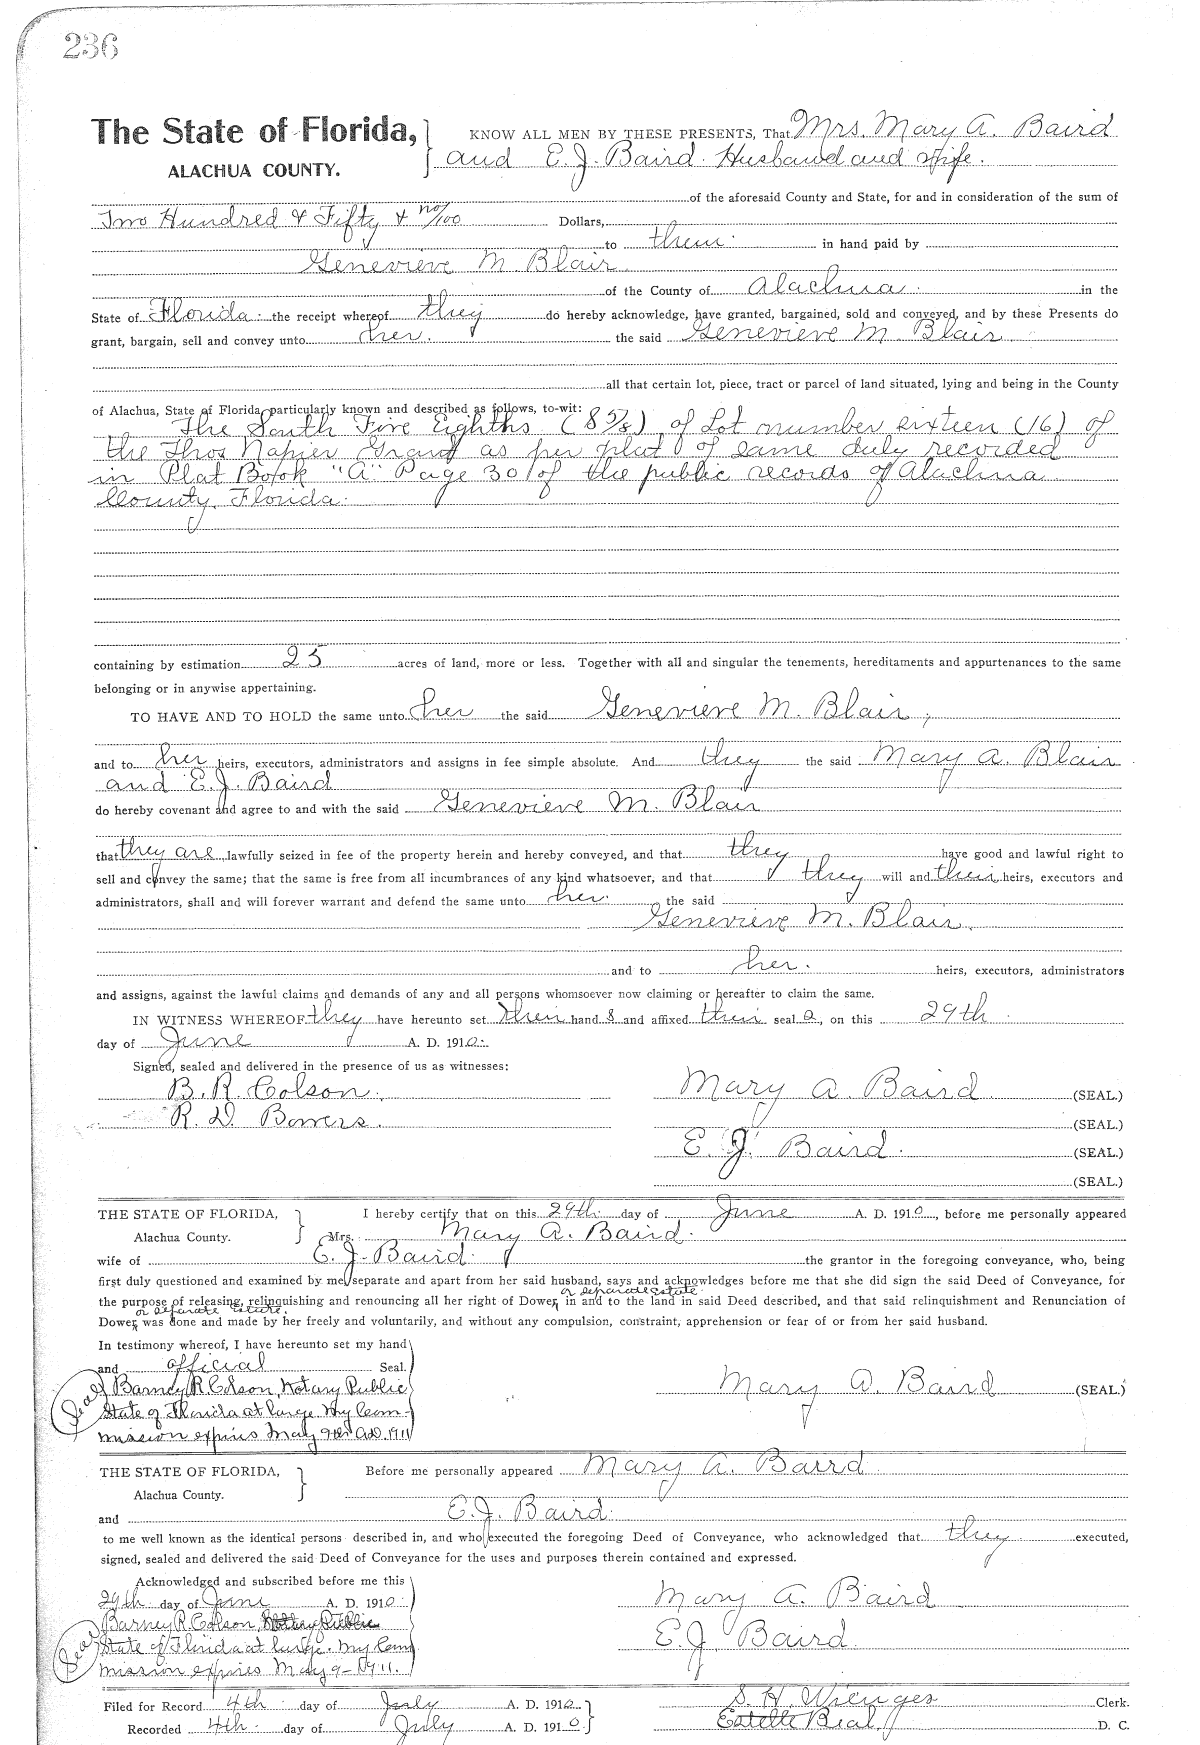 236
The State of Florida, KNOW ALL MEN BY THESE PRESENTS, That Mrs. Mary A. Baird
ALACHUA COUNTY. and E. J. Baird Husband and wife.
of the aforesaid County and State, for and in consideration of the sum of
Two Hundred & Fifty & no/100 Dollars,
to them in hand paid by
Genevieve M Blair
of the County of Alachua in the
State of Florida the receipt whereof they do hereby acknowledge, have granted, bargained, sold and conveyed, and by these Presents do
grant, bargain, sell and convey unto her. the said Genevieve M. Blair
all that certain lot, piece, tract or parcel of land situated, lying and being in the County
of Alachua, State of Florida, particularly known and described as follows, to-wit:
The South Five Eighths (8 5/8) of Lot number sixteen (16) of
the Thos Napier Grant as per plat of same duly recorded
in Plat Book "A" Page 30 of the public records of Alachua
County, Florida.
containing by estimation 25 acres of land, more or less. Together with all and singular the tenements, hereditaments and appurtenances to the same
belonging or in anywise appertaining.
TO HAVE AND TO HOLD the same unto her the said Genevieve M. Blair,
and to her heirs, executors, administrators and assigns in fee simple absolute. And they the said Mary A. Blair
and E. J. Baird
do hereby covenant and agree to and with the said Genevieve M. Blair
that they are lawfully seized in fee of the property herein and hereby conveyed, and that they have good and lawful right to
sell and convey the same; that the same is free from all incumbrances of any kind whatsoever, and that they will and their heirs, executors and
administrators, shall and will forever warrant and defend the same unto her. the said
Genevieve M. Blair.
and to her. heirs, executors, administrators
and assigns, against the lawful claims and demands of any and all persons whomsoever now claiming or hereafter to claim the same.
IN WITNESS WHEREOF they have hereunto set their hand s and affixed their seal s, on this 29th
day of June A. D. 1910.
Signed, sealed and delivered in the presence of us as witnesses:
B. R. Colson. Mary A. Baird (SEAL.)
R. D. Bowers. (SEAL.)
E. J. Baird. (SEAL.)
(SEAL.)
THE STATE OF FLORIDA, I hereby certify that on this 29th day of June A. D. 1910, before me personally appeared
Alachua County. Mrs. Mary A. Baird.
wife of E. J. Baird. the grantor in the foregoing conveyance, who, being
first duly questioned and examined by me, separate and apart from her said husband, says and acknowledges before me that she did sign the said Deed of Conveyance, for
or separate estate
the purpose of releasing, relinquishing and renouncing all her right of Dower in and to the land in said Deed described, and that said relinquishment and Renunciation of
or separate estate.
Dower was done and made by her freely and voluntarily, and without any compulsion, constraint, apprehension or fear of or from her said husband.
In testimony whereof, I have hereunto set my hand
and official Seal.
Seal Barney R. Colson, Notary Public Mary A. Baird (SEAL.)
State of Florida at large. My Com-
mission expires May 9th A.D. 1911
THE STATE OF FLORIDA, Before me personally appeared Mary A. Baird
Alachua County.
and E. J. Baird.
to me well known as the identical persons described in, and who executed the foregoing Deed of Conveyance, who acknowledged that they executed,
signed, sealed and delivered the said Deed of Conveyance for the uses and purposes therein contained and expressed.
Acknowledged and subscribed before me this
29th day of June A. D. 1910 Mary A. Baird
Barney R. Colson, Notary Public E. J. Baird.
Seal State of Florida at large. My Com
mission expires May 9 - 1911.
Filed for Record 4th day of July A. D. 1910 S. H. Wienges Clerk.
Recorded 4th day of July A. D. 1910 D. C.